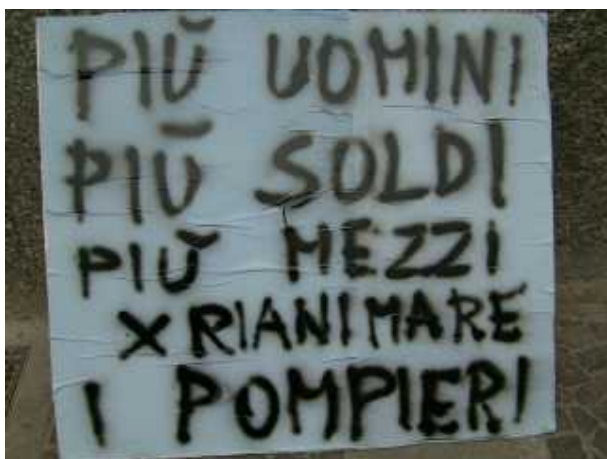 PIÙ UOMINI
PIÙ SOLDI
PIÙ MEZZI
X RIANIMARE
I POMPIERI